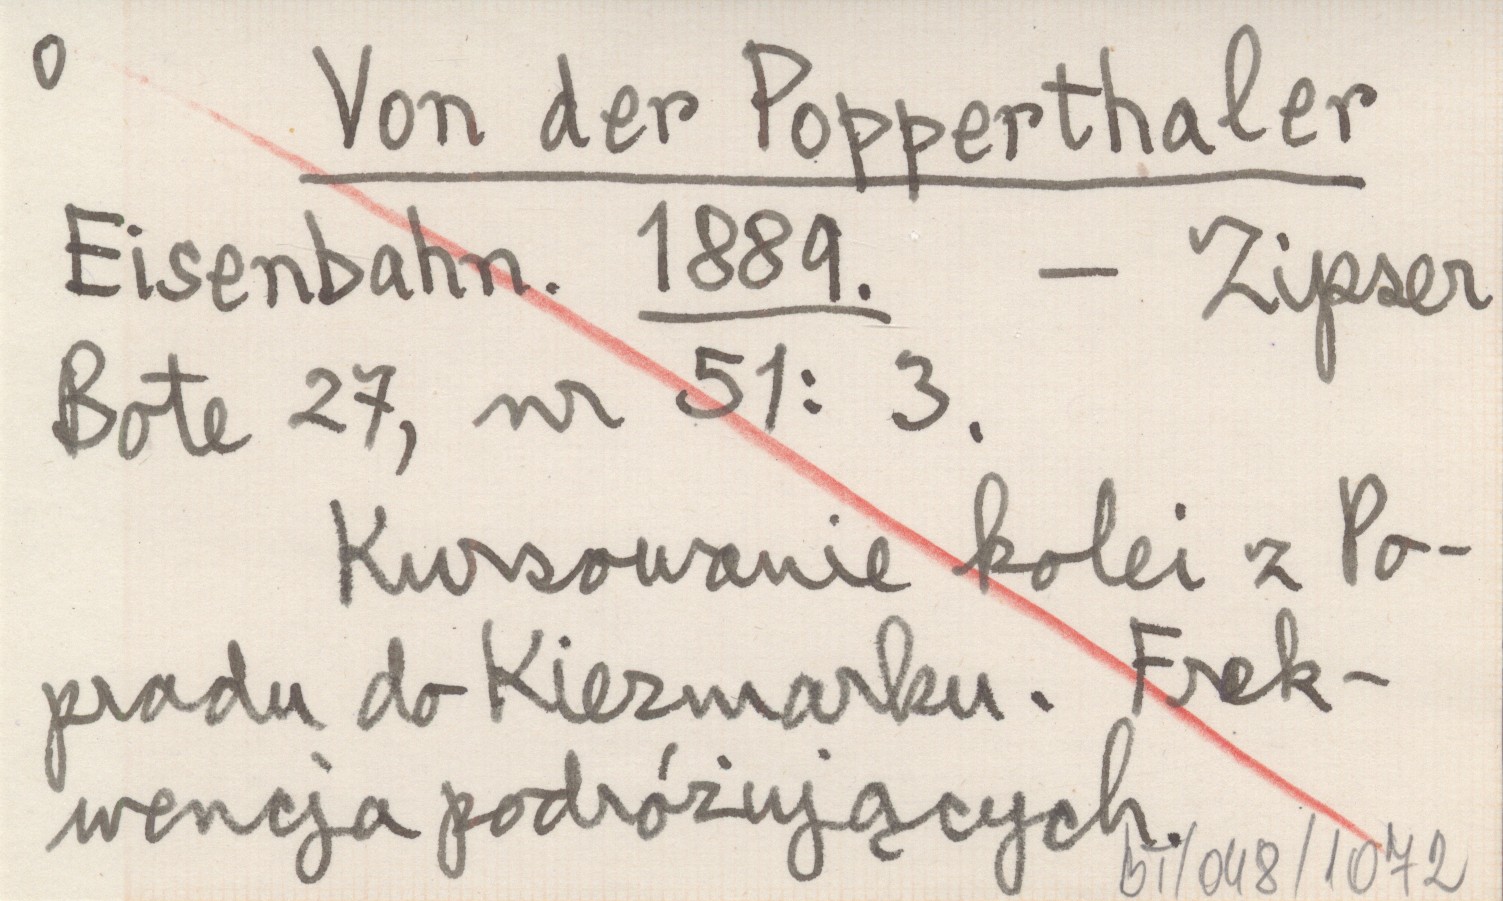 0 Von der Popperthaler
Eisenbahn. 1889. — Zipser
Bote 27, nr 51: 3.
Kursowanie kolei z Po-
pradu do Kiezmarku. Frek-
wencja podróżujących.
bi/048/1072